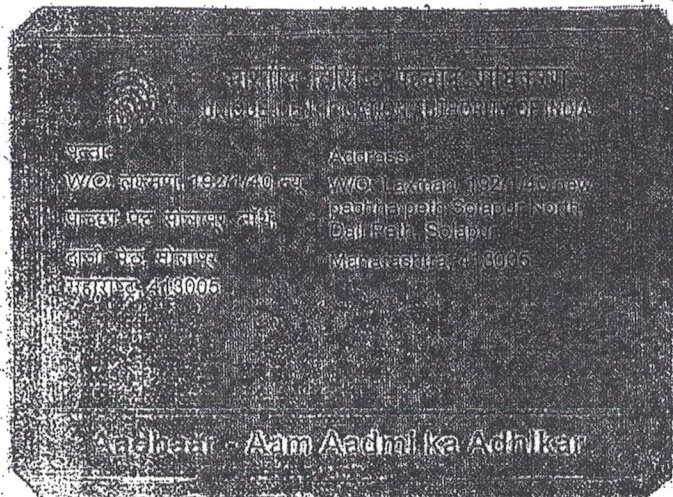 भारतीय विशिष्ट पहचान प्राधिकरण
UNIQUE IDENTIFICATION AUTHORITY OF INDIA
पत्ता:
W/O: लक्ष्मण, 192/1/40 न्यू
पाच्छा पेठ, सोलापूर नॉर्थ,
दाजी पेठ, सोलापूर
महाराष्ट्र, 413005
Address:
W/O: Laxman, 192/1/40 new
pachha peth, Solapur North,
Daji Peth, Solapur
Maharashtra, 413005
Aadhaar - Aam Aadmi ka Adhikar